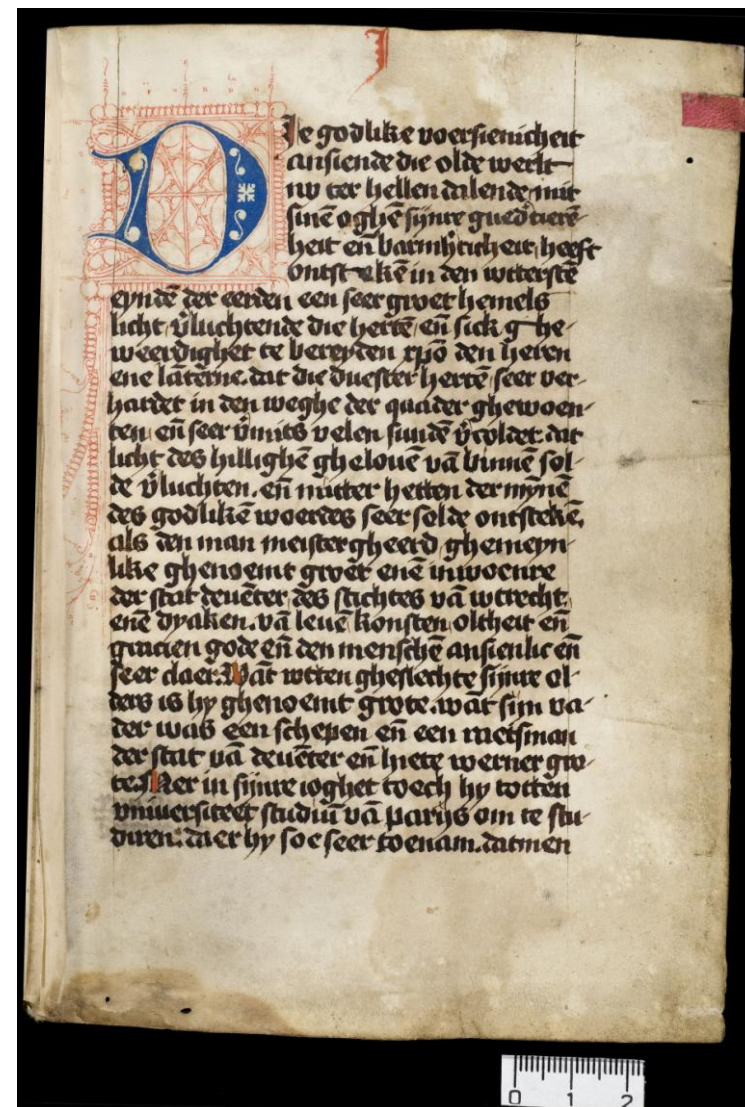 Die godlike voersienicheit
ansiende die olde werlt
nv ter hellen dalende mit
sinē oghē sijnre guedˀtierē-
heit eñ barmh̾ticheit heeft
ontsteken in den wtterstē
eyndē der eerden een seer groet hemels
licht v̾luchtende die hertē eñ sick ghe-
weerdighet te bereyden xp̄o den heren
ene lātērne. dat die duester hertē seer ver-
hardet in den weghe der quader ghewoen-
ten eñ seer v̾mits velen sundē v̾coldet. dat
licht des hillighē ghelouē vā binnē sol-
de v̾luchten. eñ mitter hetten der mȳnē
des godlikē woerdes seer solde ontstekē.
als den man meister gheerd ghemeyn-
like ghenoemt groet enē inwoenre
der stat deuēter des stichtes vā wtrecht.
enē dyaken. vā leuē konsten oltheit eñ
gracien gode eñ den menschē ansienlic eñ
seer claer. Wāt wtten gheslechte sijnre ol-
ders is hy ghenoemt grote. wāt sijn va-
der was een schepen eñ een raetsman
der stat vā deuēter eñ hiete werner gro-
te. Mer in sijnre ioghet toech hy totten
vniuersiteet studiū vā parijs om te stu-
diren. daer hy soe seer toenam. datmen
0 1 2